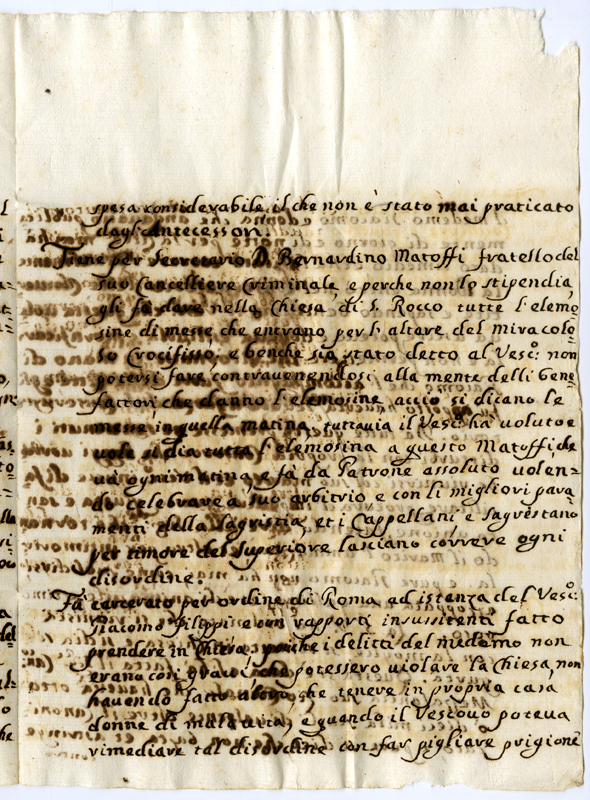 spesa considerabile il che non è stato mai praticato
dagl'Antecessori.
Tiene per Secretario D. Bernardino Matoffi fratello del
suo Cancelliere Criminale, e perche non lo stipendia
gli fà dare nella Chiesa di S. Rocco tutte l'elemo=
sine di messe che entrano per l'altare del miracolo=
so Crocifisso, e benche sia stato detto al Vesc:o non
potersi fare contravenendosi alla mente delli bene=
fattori che danno l'elemosine acciò si dicano le
messe in quella matina, tuttavia il Vesc:o hà voluto e
vole si dia tutta l'elemosina a questo Matoffi che
và ogni matina e fà da Patrone assoluto volen=
do celebrare a suo arbitrio e con li migliori para
menti della Sagristia, et i Cappellani e Sagrestano
per timore del Superiore lasciano correre ogni
disordine.
Fù carcerato per ordine di Roma ad istanza del Vesc:o
Giacomo Filippi e con rapporti insussitenti fatto
prendere in Chiesa, poiche i delitti del medemo non
erano così gravi che potessero violare la Chiesa, non
havendo fatto che tenere in propria casa
donne di mala vita, e quando il Vescovo poteva
rimediare tal disordine con far pigliare prigione